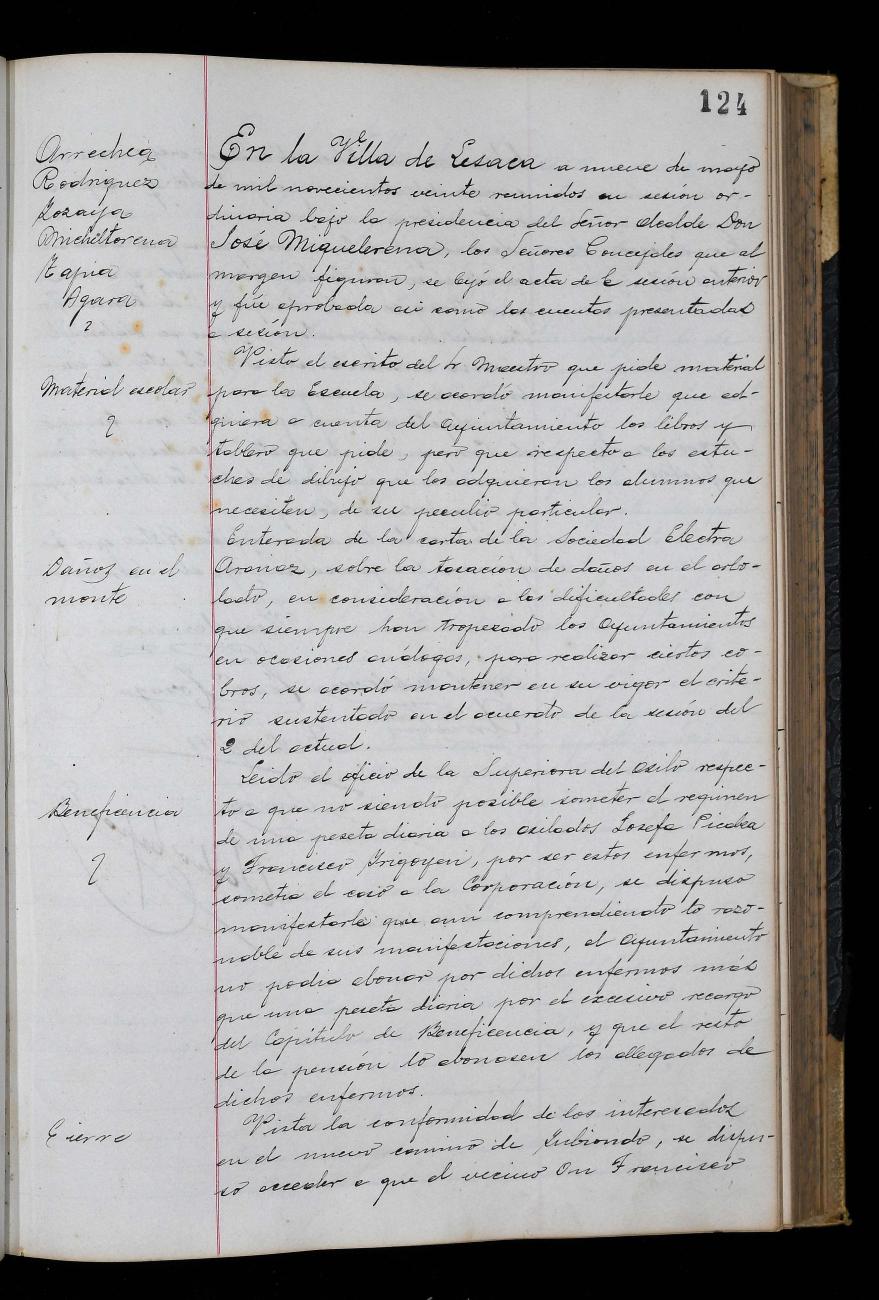 124
Arrechea
Rodriguez
Lozaya
Micheltorena
Tapia
Agara
En la Villa de Lesaca a nueve de mayo
de mil novecientos veinte reunidos en sesión or-
dinaria bajo la presidencia del Señor Alcalde Don
José Miquelerena, los Señores Concejales que al
margen figuran, se leyó el acta de la sesión anterior
y fúe aprobada asi como las cuentas presentadas
a sesión.
Material escolar
Visto el escrito del Sr Maestro que pide material
para la Escuela, se acordó manifestarle que ad-
quiera a cuenta del Ayuntamiento los libros y
tablero que pide, pero que respecto a los estu-
ches de dibujo que los adquieran los alumnos que
necesiten, de su peculio particular.
Daños en el
monte
Enterada de la carta de la Sociedad Electra
Aranaz, sobre la tasación de daños en el arbo-
lado, en consideración a las dificultades con
que siempre han tropezado los Ayuntamientos
en ocasiones análogas, para realizar ciertos co-
bros, se acordó mantener en su vigor el crite-
rio sustentado en el acuerdo de la sesión del
2 del actual.
Beneficencia
Leido el oficio de la Superiora del Asilo respec-
to a que no siendo posible someter al regimen
de una peseta diaria a los asilados Josefa Piedra
y Francisco Irigoyen, por ser estos enfermos,
sometia el caso a la Corporación, se dispuso
manifestarle que aun comprendiendo lo razo-
nable de sus manifestaciones, el Ayuntamiento
no podia abonar por dichos enfermos más
que una peseta diaria por el excesivo recargo
del Capítulo de Beneficencia, y que el resto
de la pensión lo abonasen los allegados de
dichos enfermos.
Cierre
Vista la conformidad de los interesados
en el nuevo camino de Zubiondo, se dispu-
so acceder a que el vecino Dn Francisco